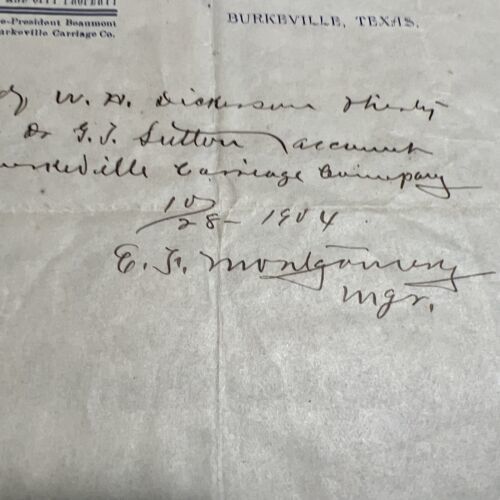 AND CITY PROPERTY
e-President Beaumont
arkeville Carriage Co.
BURKEVILLE, TEXAS.
W. H. Dickerson thirty
Dr G. T. Sutton account
urkeville Carriage Company
10/28 - 1904
E. F. Montgomery
Mgr.